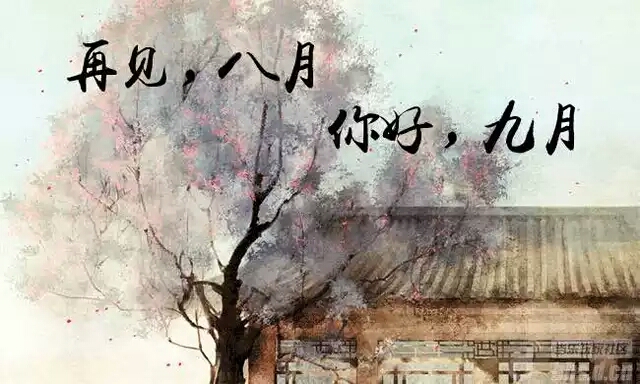 再见，八月
你好，九月